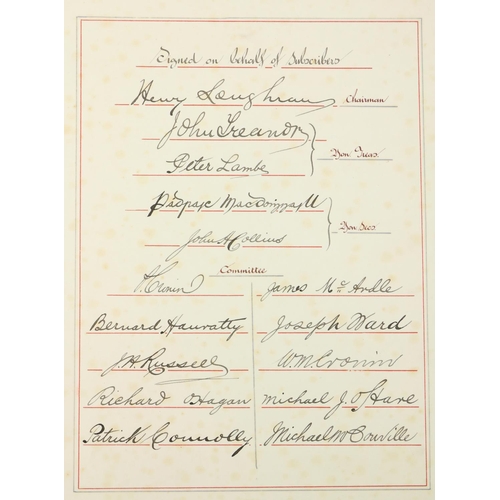 Signed on behalf of Subscribers
Henry Loughran Chairman
John Treanor
Hon. Treas.
Peter Lambe
Pádraic MacDomnaill
Hon. Secs
John H Collins
Committee
Cronin James Mc Ardle
Bernard Hanratty Joseph Ward
J.H. Russell W.M. Cronin
Richard O'Hagan Michael J. O'Hare
Patrick Connolly Michael